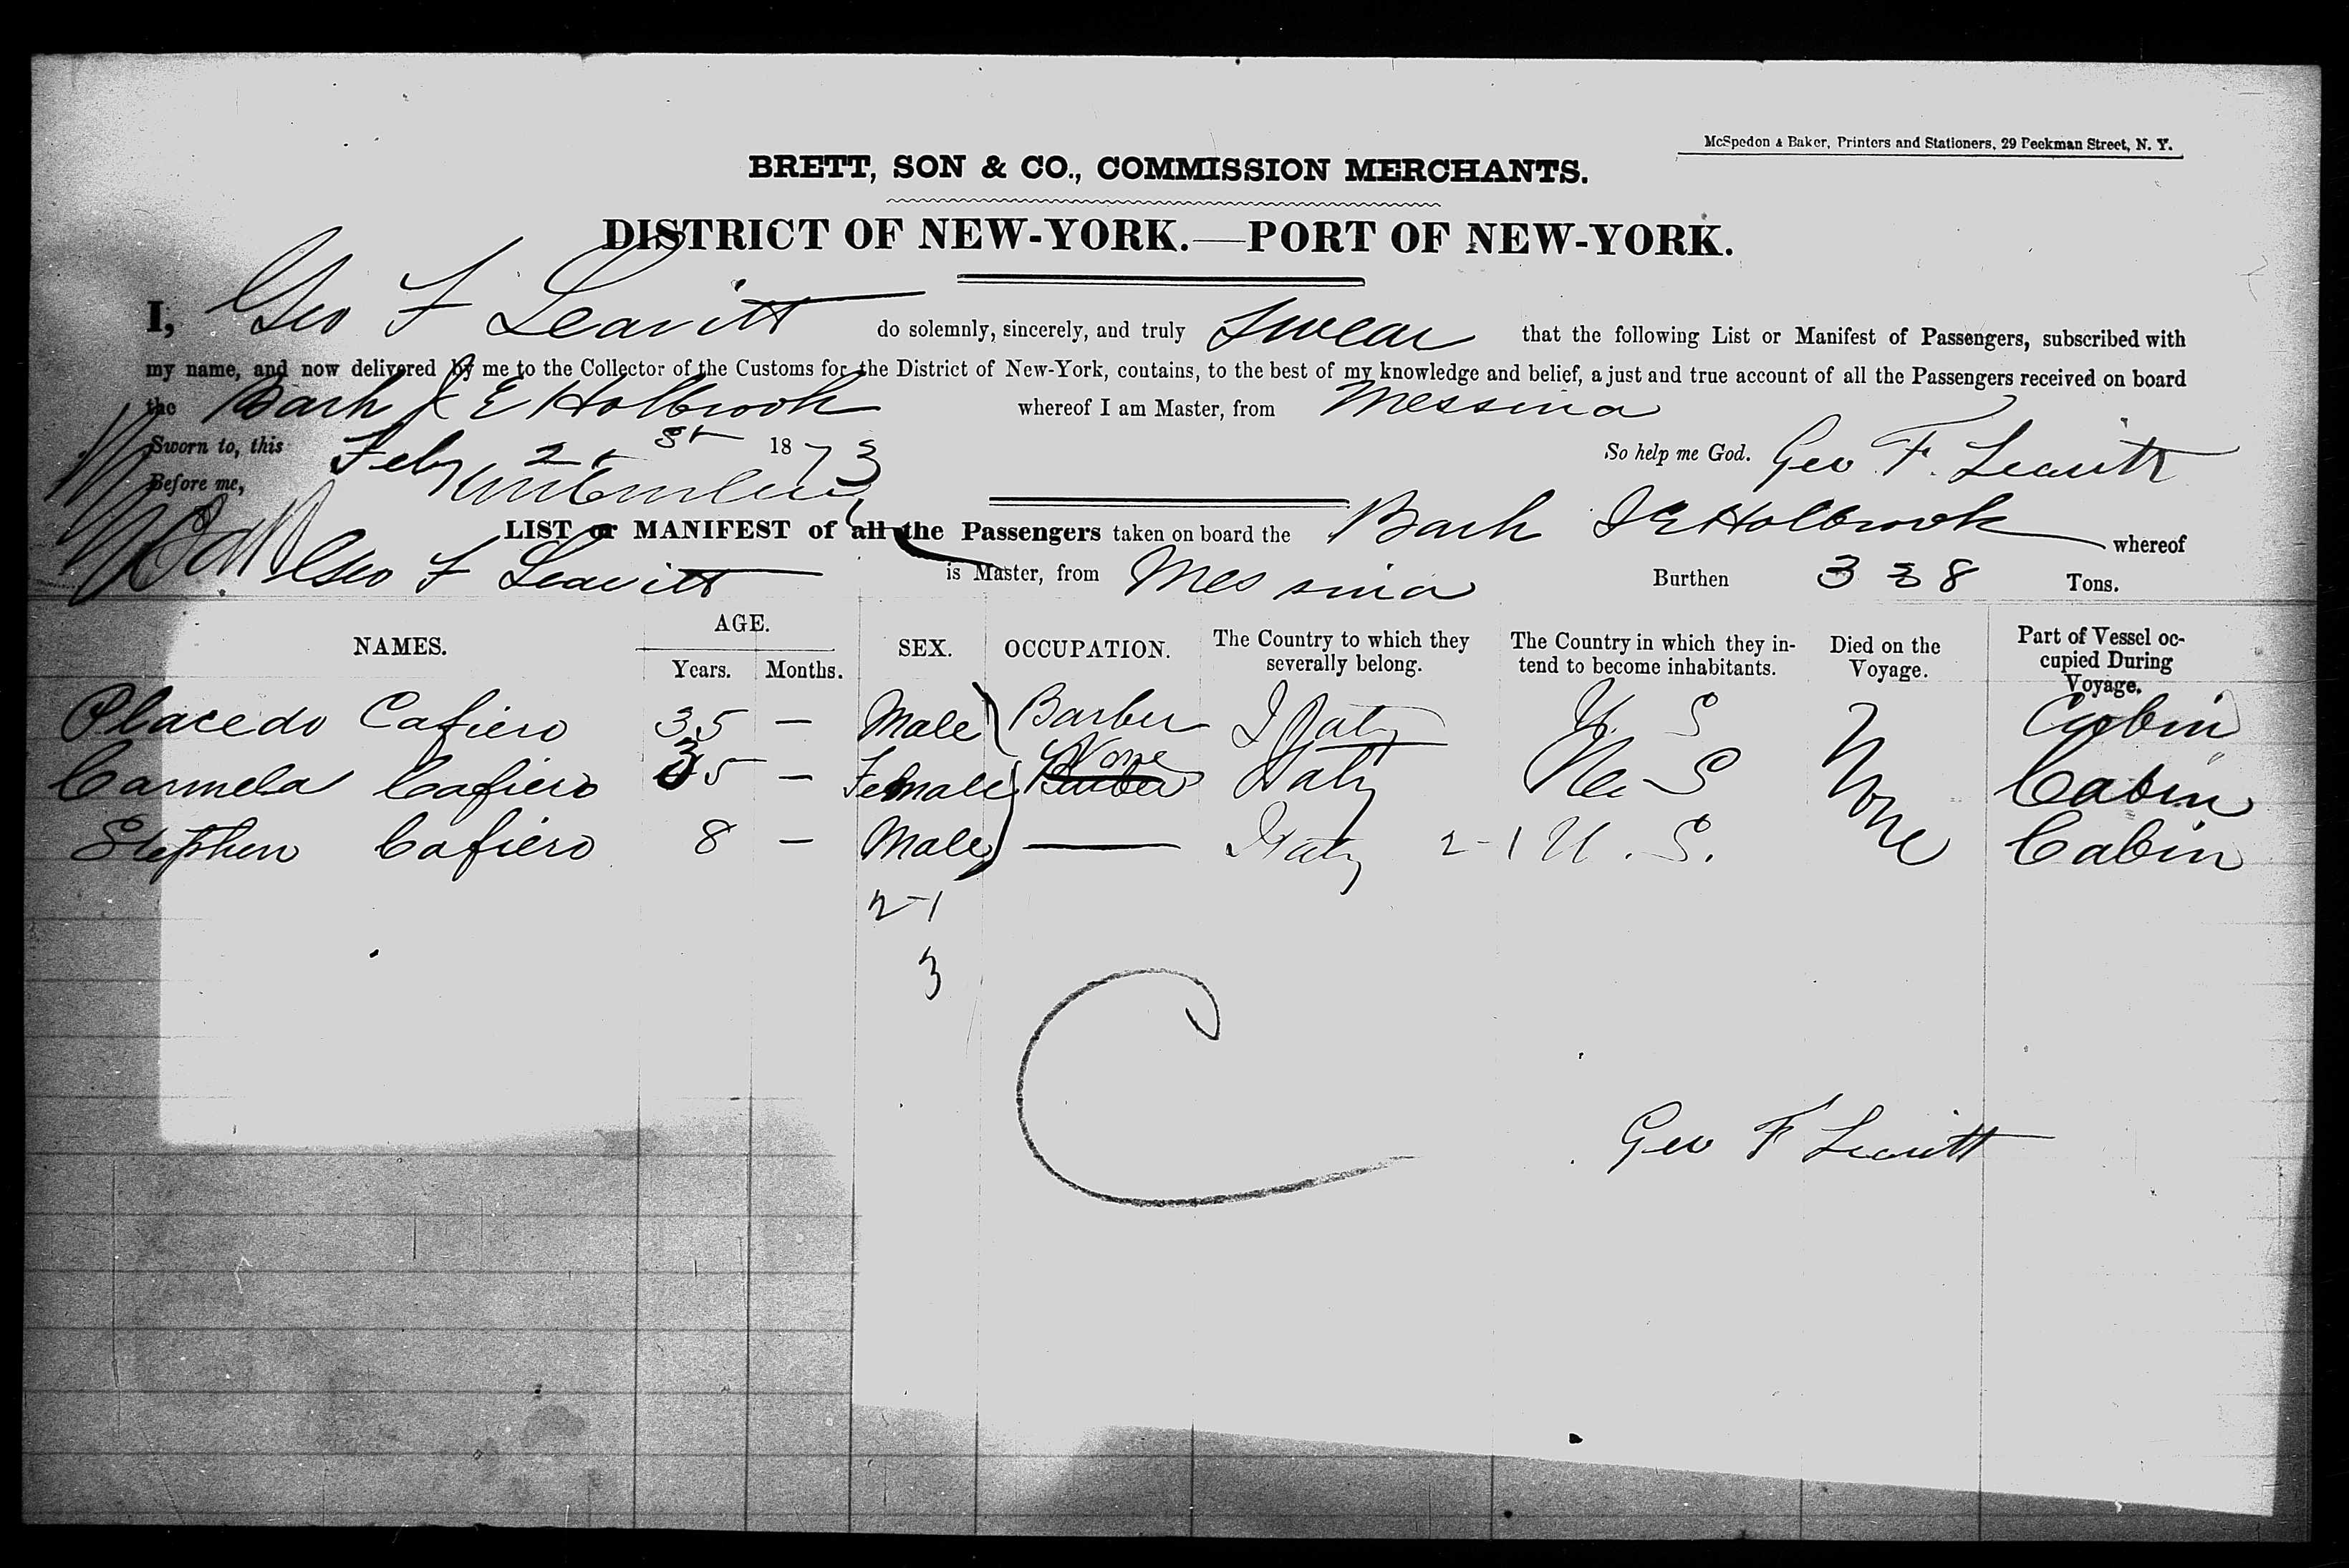 McSpedon & Baker, Printers and Stationers, 29 Beekman Street, N. Y.
BRETT, SON & CO., COMMISSION MERCHANTS.
DISTRICT OF NEW-YORK.—PORT OF NEW-YORK.
I, Geo F Leavitt do solemnly, sincerely, and truly Swear that the following List or Manifest of Passengers, subscribed with
my name, and now delivered by me to the Collector of the Customs for the District of New-York, contains, to the best of my knowledge and belief, a just and true account of all the Passengers received on board
the Bark J E Holbrook whereof I am Master, from Messina
Sworn to, this Feby 1873 So help me God. Geo F. Leavitt
Before me,
LIST or MANIFEST of all the Passengers taken on board the Bark J E Holbrook whereof
Geo F Leavitt is Master, from Messina Burthen 338 Tons.
NAMES. AGE. Years. Months. SEX. OCCUPATION. The Country to which they severally belong. The Country in which they intend to become inhabitants. Died on the Voyage. Part of Vessel occupied During Voyage.
Placedo Cafiero 35 — Male Barber Italy U. S Cabin
Carmela Cafiero 35 — Female None Italy U S None Cabin
Stephen Cafiero 8 — Male — Italy 2-1 U. S. Cabin
2-1
3
C
Geo F Leavitt